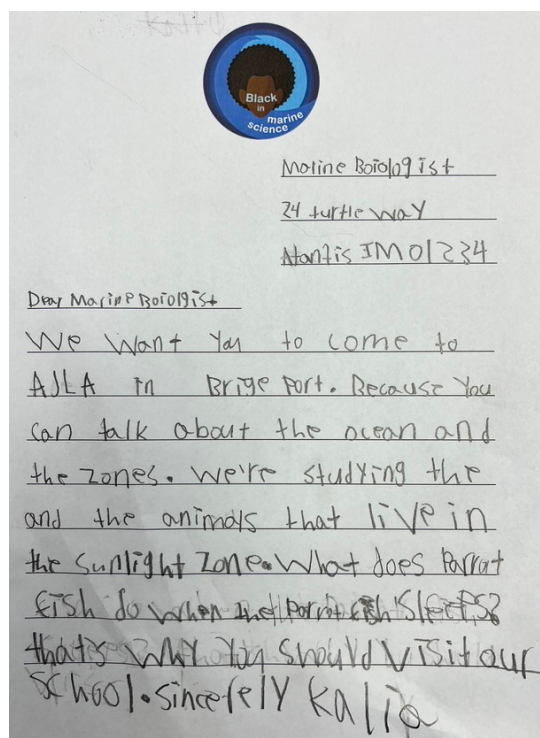 Black
in
marine
science
Marine Boiologist
24 turtle way
Atantis IM 01234
Dear Marine Boiologist
We want you to come to
AJLA in Brige port. Because you
can talk about the ocean and
the zones. we're studying the
and the animals that live in
the sunlight zone. What does Parrot
fish do when the Parrot fish sleeps?
that's why you should visit our
school. sincerely Kalia